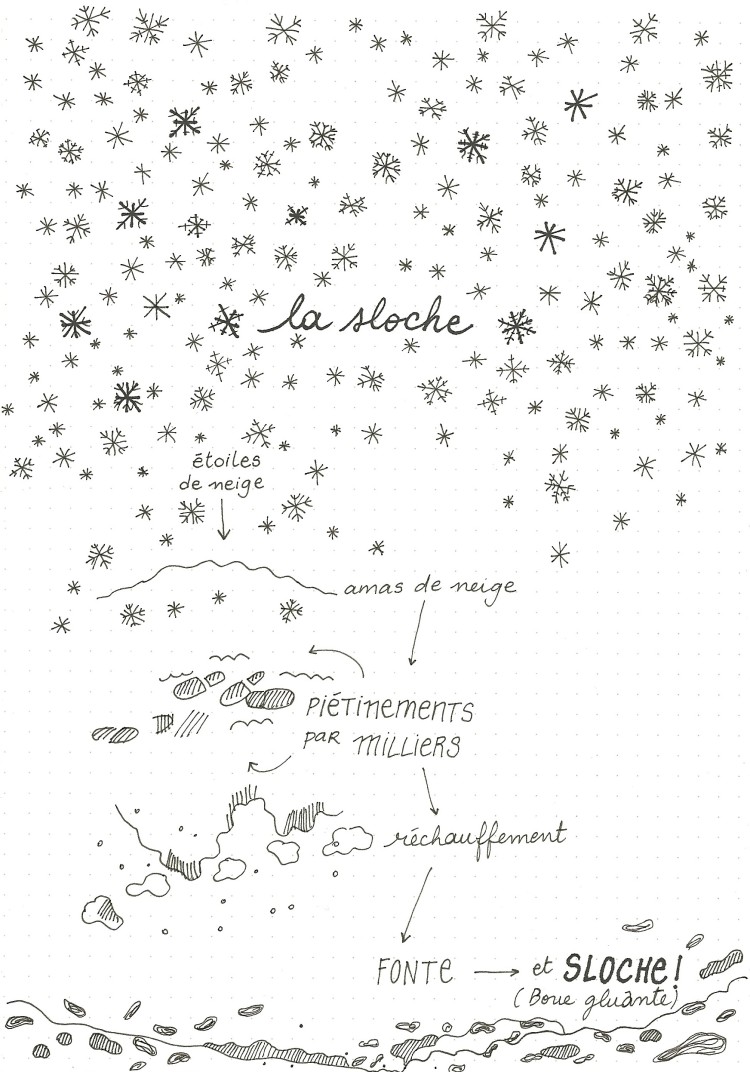 la sloche
étoiles
de neige
amas de neige
PIÉTINEMENTS
PAR MILLIERS
réchauffement
FONTE → et SLOCHE!
(Boue gluante)